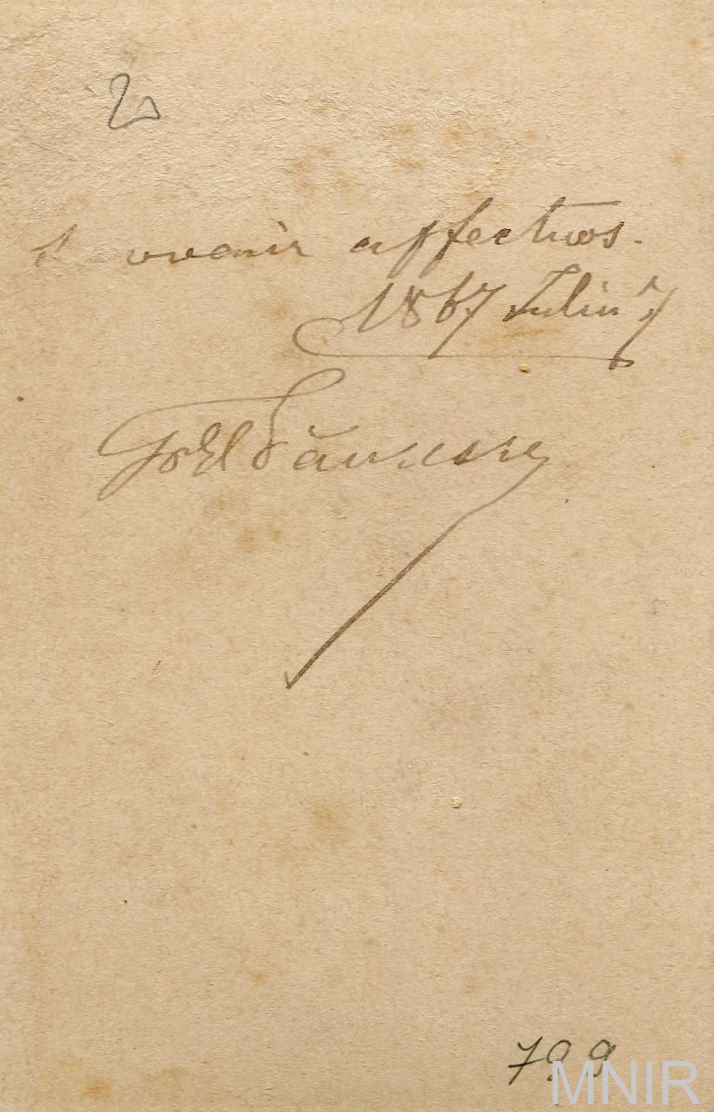 2
Suvenir affectuos.
1867 Iuliu 7
799
MNIR